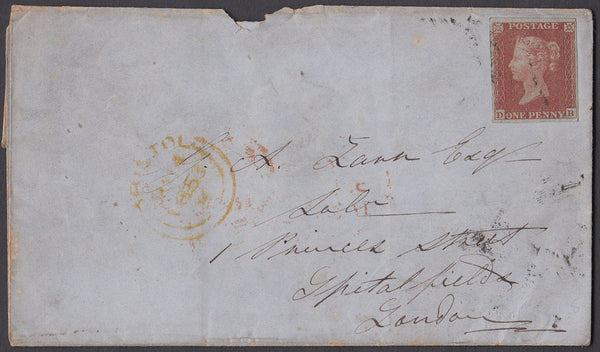 POSTAGE
D ONE PENNY B
BRISTOL
1853
A. Zann Esqr
1 Princes Street
Spitalfields
London